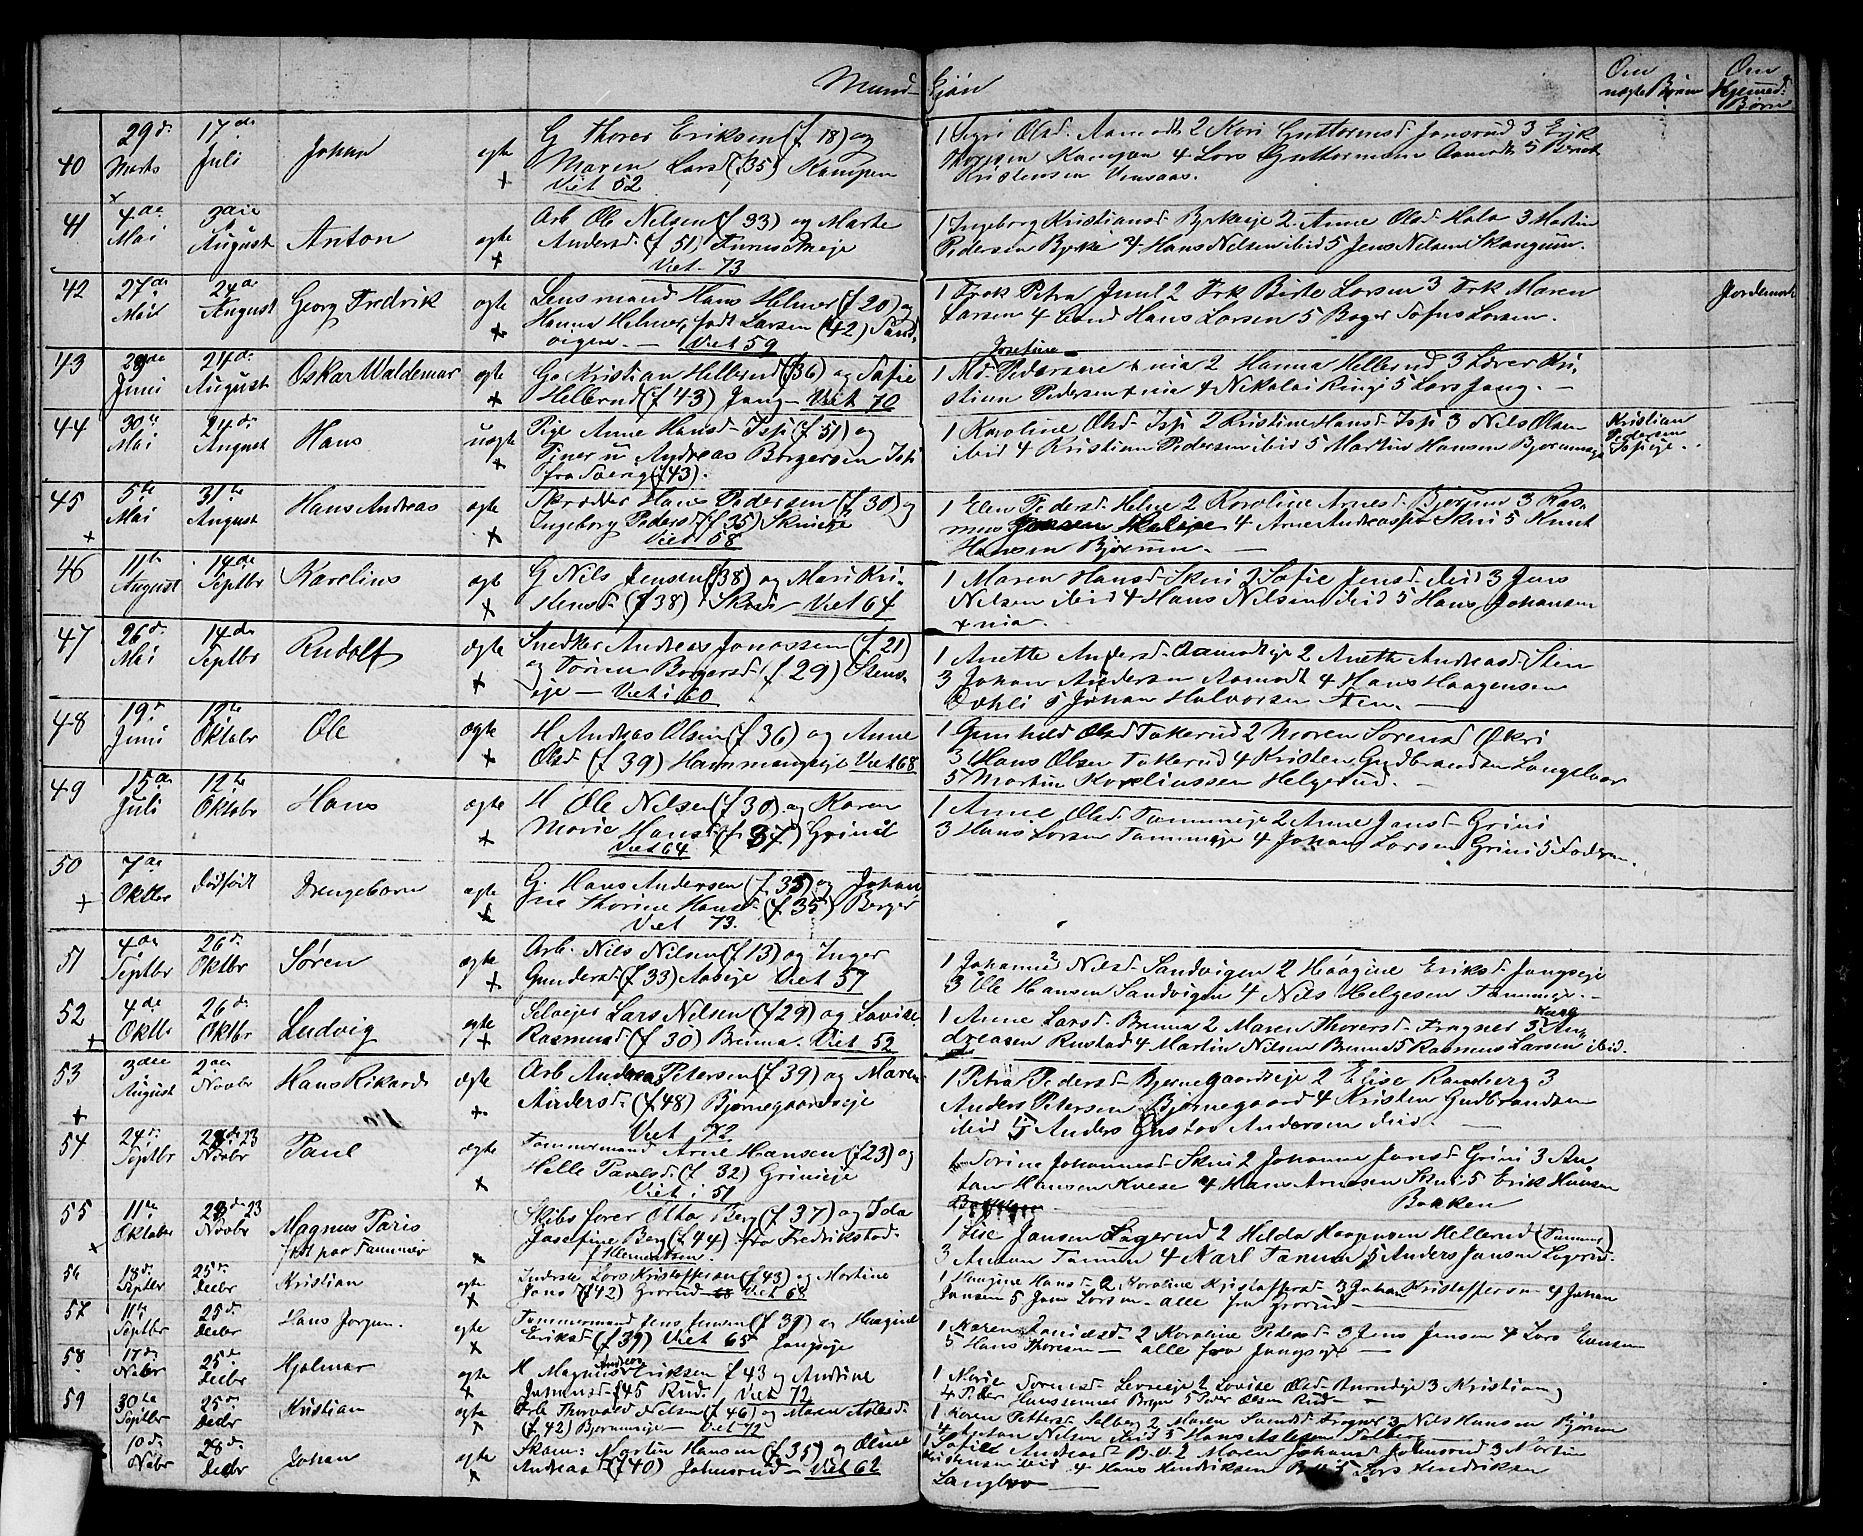 Mand Kjön
Om uægte Børn
Om Hjemmed. Børn
40 29de Marts 17de Juli Johan ægte G Thorer Eriksen (f 18) og
Maren Larsd (f 35) Kampen
Viet 52
1 Sigri Olsd. Aamodt 2 Kari Guttormsd Jonsrud 3 Erik
Thoresen Kampen 4 Lars Guttormsen Aamodt 5 Bernt
Kristensen Vensaas.
41 4de Mai 3die August Anton ægte Arb Ole Nilsen (f 33) og Marte
Andersd. (f 51)
Viet 73
1 Ingeborg Kristiansd Byrkeeje 2 Anne Olsd Hala 3 Martin
Pedersen Byrke 4 Hans Nilsen ibid 5 Jens Nilsen Skaugum.
42 27de Mai 24de August Georg Fredrik ægte Lensmand Hans Helmer (f 20) og
Hanna Helmer, født Larsen (42) Sand-
vigen. — Viet 59
1 Frøk Petra Juul 2 Frk Birte Larsen 3 Frk Maren
Larsen 4 Cand Hans Larsen 5 Bager Sofus Larsen.
Jordemoder
43 Juni 24de August Oskar Waldemar ægte Kristian Hellerud (f 36) og Sofie
Hellerud (f 43) Jong — Viet 70
Josefine
1 Md. Pedersen + nia 2 Hanna Hellerud 3 Lærer Kri
stian Pedersen + nia 4 Nikolai Ringi 5 Lars Jong. —
44 30te Mai 24de August Hans uægte Pige Anne Hansd. Isi (f 51) og
Tjener u Andreas Borgersen Isi
fra Sverig (f 43).
1 Karoline Olsd Isi 2 Kristine Hansd Isi 3 Nils Olsen
ibid 4 Kristian Pedersen ibid 5 Martin Hansen Bjørumseje
Kristian Pedersen Isieje.
45 5te Mai 31te August Hans Andreas ægte Skrædder Hans Pedersen (f 30) og
Ingeborg Pedersd (f 35) Skuieje
Viet 58
1 Elen Pedersd. Helne 2 Karoline Arnesd. Bjørum 3 Ras-
mus Jensen 4 Arne Andreassen Skui 5 Knut
Hansen Bjørum. —
46 11te August 14de Septbr Karelius ægte G Nils Jensen (f 38) og Mari Kri-
stensd (f 38) Skui — Viet 64
1 Maren Hansd Skui 2 Sofie Jensd ibid 3 Jens
Nilsen ibid 4 Hans Nilsen ibid 5 Hans Johansen
+ nia.
47 26de Mai 14de Septbr Rudolf ægte Snedker Andreas Jonassen (f 21)
og Borgersd. (f 29) Stens-
eje — Viet i 60
1 Anette Andersd. Aamodteje 2 Anette Andreasd. Sten
3 Johan Andersen Aamodt 4 Hans Haagensen
Dæhli 5 Johan Halvorsen —
48 19de Juni 12te Oktobr Ole ægte H Andreas Olsen (f 36) og Anne
Olsd (f 39) Hammangeje Viet 68
1 Gunhild Olsd Tokerud 2 Maren Sorensd Økri
3 Hans Olsen Tokerud 4 Kristen Gudbrandsen
5 Martin Korneliussen Helgerud. —
49 15de Juli 12te Oktobr Hans ægte H Ole Nilsen (f 30) og Karen
Marie Hansd (f 37) Grinil
Viet 64
1 Anne Olsd. Tanumeje 2 Anne Jansd Grini
3 Hans Larsen Tanumeje 4 Johan Larsen Grini 5 Faderen.
50 7de Oktbr dødfødt Drengebarn ægte G. Hans Andersen (f 33) og Johan
ne Thorine Hansd. (f 35) Berger
Viet 73.
51 4de Septbr 26de Oktbr Søren ægte Arb. Nils Nilsen (f 13) og Inger
Gundersd (f 33) Viet 57
1 Johanne Nilsd Sandvigen 2 Haagine Eriksd Jongseje
3 Ole Hansen Sandvigen 4 Nils Helgesen Tanumeje.
52 4de Oktbr 26de Oktbr Ludvig ægte Selveier Lars Nilsen (f 29) og Lovise
Rasmusd (f 30) Brenna. Viet 52
1 Anne Larsd. Brenna 2 Maren Thoresd. Frogner 3 An-
dreasen Rustad 4 Martin Nilsen Brenna 5 Rasmus Larsen ibid.
53 3die August 2den Novbr Hans Rikard ægte Arb Andreas Petersen (f 39) og Maren
Andersd. (f 48) Bjørnegaardseje
Viet 72
1 Petra Pedersd. Bjørnegaardseje 2 Elise Ramberg 3
Anders Petersen Bjørnegaard 4 Kristen Gudbrandsen
ibid 5 Anders Gustav Andersen ibid. —
54 24de Septbr 23 Novbr Paul ægte Tømmermand Arne Hansen (f 23) og
Helle Paulsd (f 32) Grinieje
Viet i 51
1 Sorine Johannesd. Skui 2 Johanne Jansd. Grini 3 An
ton Hansen 4 Hans Arnesen Skui 5 Erik Hansen
Bakken
55 11te Oktober 23 Novbr Magnus Paris
født paa Tanumeje Skibsfører Otto Berg (f 37) og Ida
Josefine Berg (f 44) fra Fredrikstad
f Klementsen.
1 Lise Jansen Løgerud 2 Helda Haagensen Hellerud (Tanum)
3 Anton Tanum 4 Karl Tanum 5 Anders Jansen Løgerud.
56 18de Septbr 25de Decbr Kristian ægte Inderst Lars Kristoffersen (f 43) og Martine
Jansd (f 42) Grorud Viet 68
1 Haagine Hansd. 2 Karoline Kristoffersd 3 Johan Kristoffersen 4 Johan
Jansen 5 Jans Larsen — alle fra Grorud —
57 11te Septbr 25de Decbr Hans Jørgen. ægte Tømmermand Jens Jensen (f 39) og Haagine
Eriksd (f 39) Viet 65 Jongseje
1 Karen 2 Karoline Pedersd. 3 Jens Jensen 4 Lars Evensen
5 Hans Thoresen — alle fra Jongseje —
58 17de Novbr 25de Decbr Hjalmar ægte H Magnus Andreas Eriksen f 43 og Andrine
f 45 Rud. Viet 72
1 Marie Sorensd. 2 Lovise Olsd 3 Kristian
4 Peder 5 Peder Olsen Rud
59 30te Septbr 25de Decbr Kristian ægte Arb Thorvald Nilsen (f 46) og Maren Aslesd
(f 42) Bjørumseje — Viet 72
1 Karen Pettersd. Solberg 2 Maren Frogner 3 Nils Hansen Bjørum
4 Nilsen ibid 5 Hans Aslesen Solberg
10de Novbr 28de Decbr Johan ægte Skom: Martin Hansen (f 35) og Oline
Andreasd (f 40) Johnsrud — Viet 62
1 Sofie Andreasd 2 Maren Johansd Johnsrud 3 Martin
Kristensen ibid. 4 Hans Hendriksen 5 Lars Hendriksen